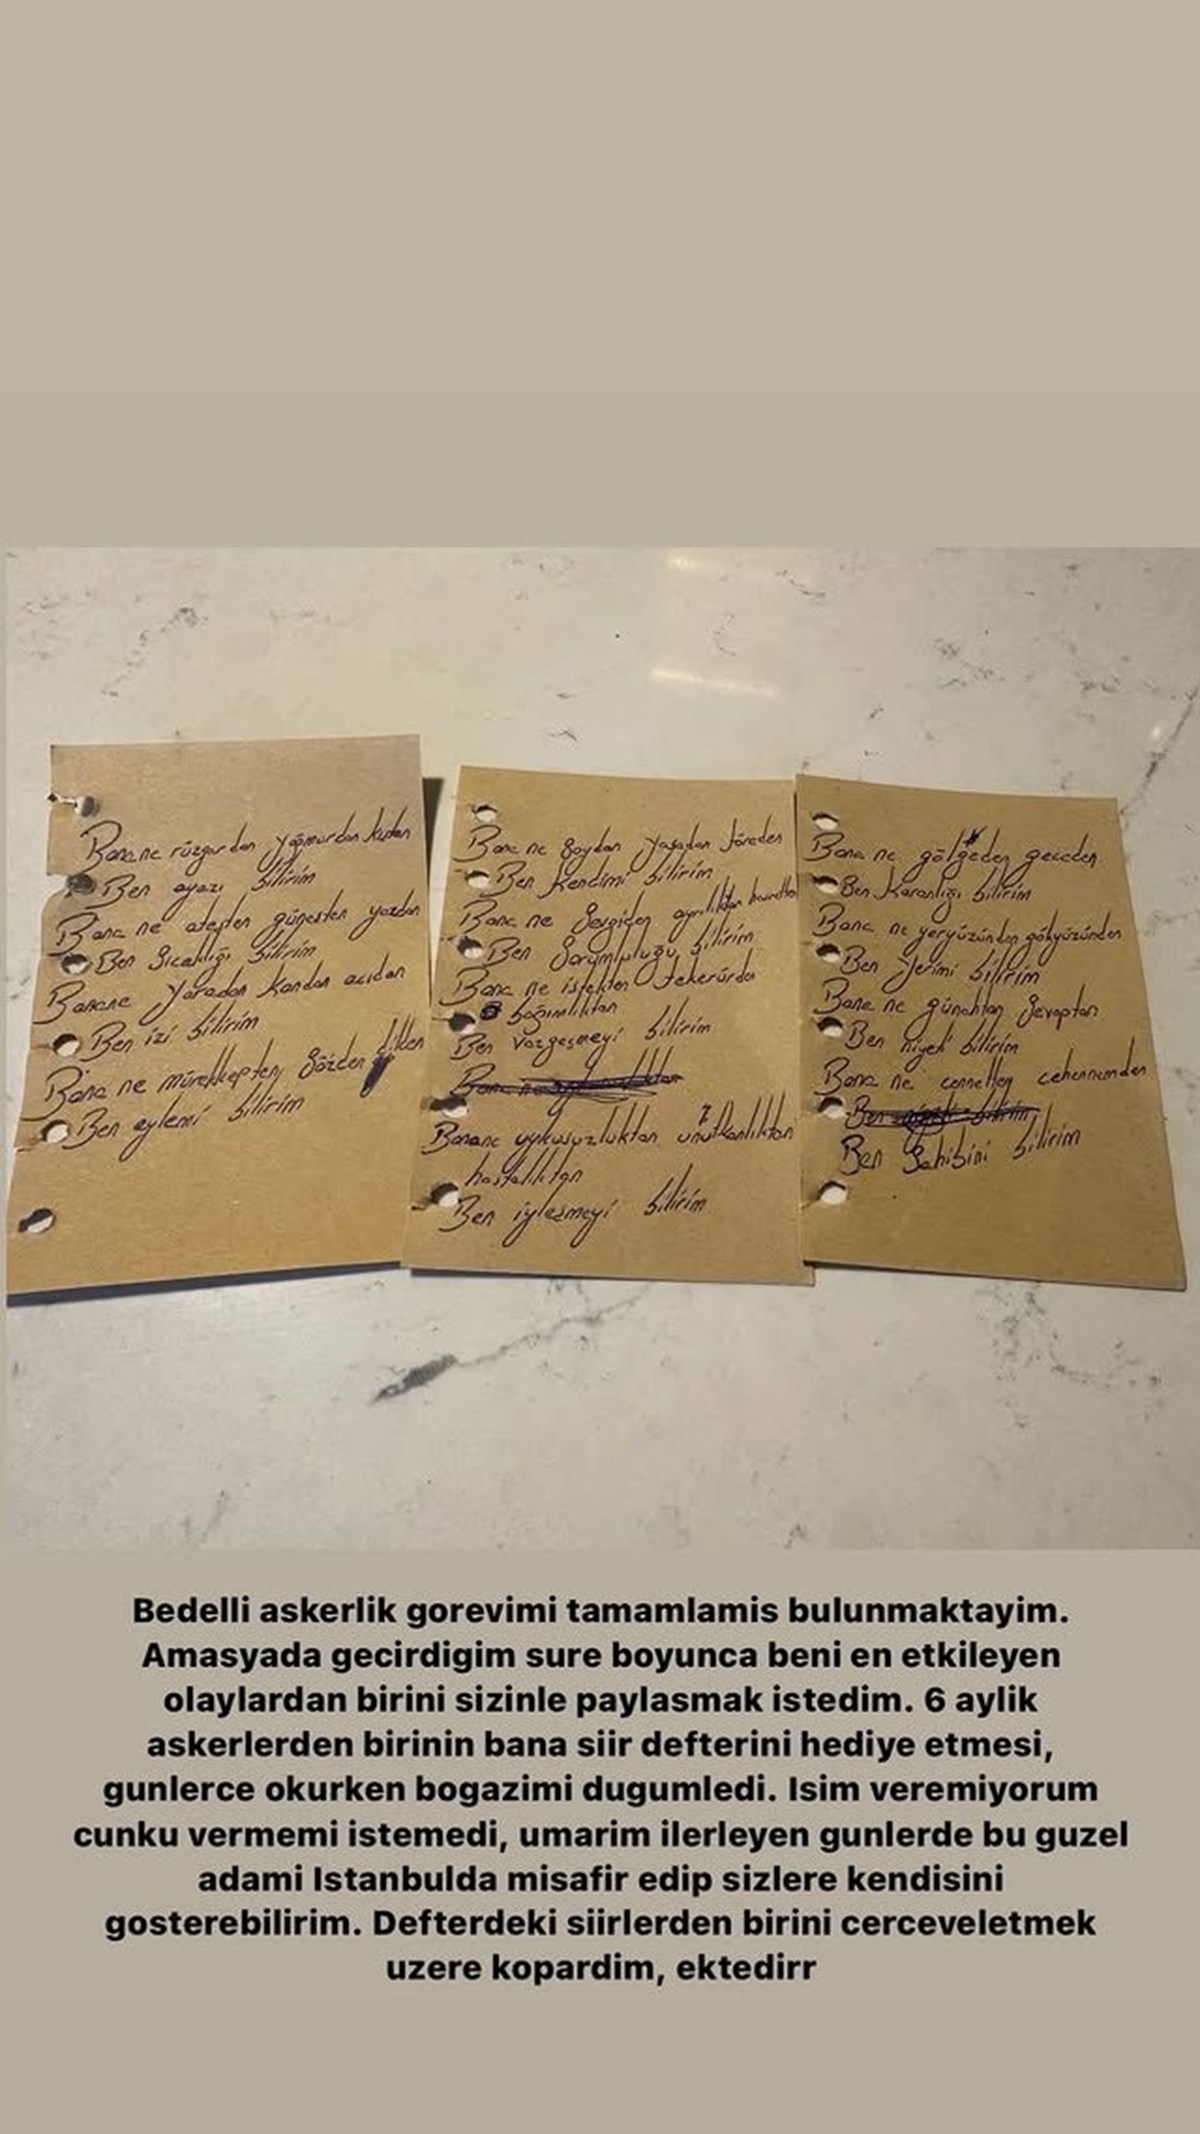 Bana ne rüzgardan yağmurdan kıştan
Ben ayazı bilirim
Bana ne ateşten güneşten yazdan
Ben Sıcaklığı bilirim
Banane yaradan kandan acıdan
Ben izi bilirim
Bana ne mürekkepten Sözden dilden
Ben eylemi bilirim
Bana ne Soydan yasadan töreden
Ben Kendimi bilirim
Bana ne Sevgiden ayrılıktan
Ben Sorumluluğu bilirim
Bana ne istekten tekerürden
bağımlılıktan
Ben Vazgeçmeyi bilirim
Banane uykusuzluktan unutkanlıktan
hastalıktan
Ben iyleşmeyi bilirim
Bana ne gölgeden geceden
Ben Karanlığı bilirim
Bana ne yeryüzünden gökyüzünden
Ben Yerimi bilirim
Bana ne günahtan Sevaptan
Ben niyeti bilirim
Bana ne cennetten cehennemden
Ben Sahibini bilirim
Bedelli askerlik gorevimi tamamlamis bulunmaktayim.
Amasyada gecirdigim sure boyunca beni en etkileyen
olaylardan birini sizinle paylasmak istedim. 6 aylik
askerlerden birinin bana siir defterini hediye etmesi,
gunlerce okurken bogazimi dugumledi. Isim veremiyorum
cunku vermemi istemedi, umarim ilerleyen gunlerde bu guzel
adami Istanbulda misafir edip sizlere kendisini
gosterebilirim. Defterdeki siirlerden birini cerceveletmek
uzere kopardim, ektedirr